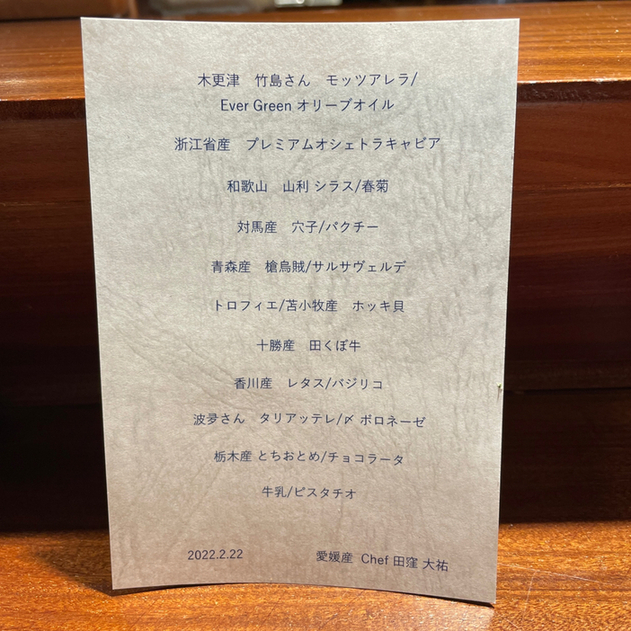 木更津　竹島さん　モッツアレラ/
Ever Green オリーブオイル
浙江省産　プレミアムオシェトラキャビア
和歌山　山利 シラス/春菊
対馬産　穴子/パクチー
青森産　槍烏賊/サルサヴェルデ
トロフィエ/苫小牧産　ホッキ貝
十勝産　田くぼ牛
香川産　レタス/バジリコ
波夛さん　タリアッテレ/〆 ボロネーゼ
栃木産 とちおとめ/チョコラータ
牛乳/ピスタチオ
2022.2.22　愛媛産 Chef 田窪 大祐